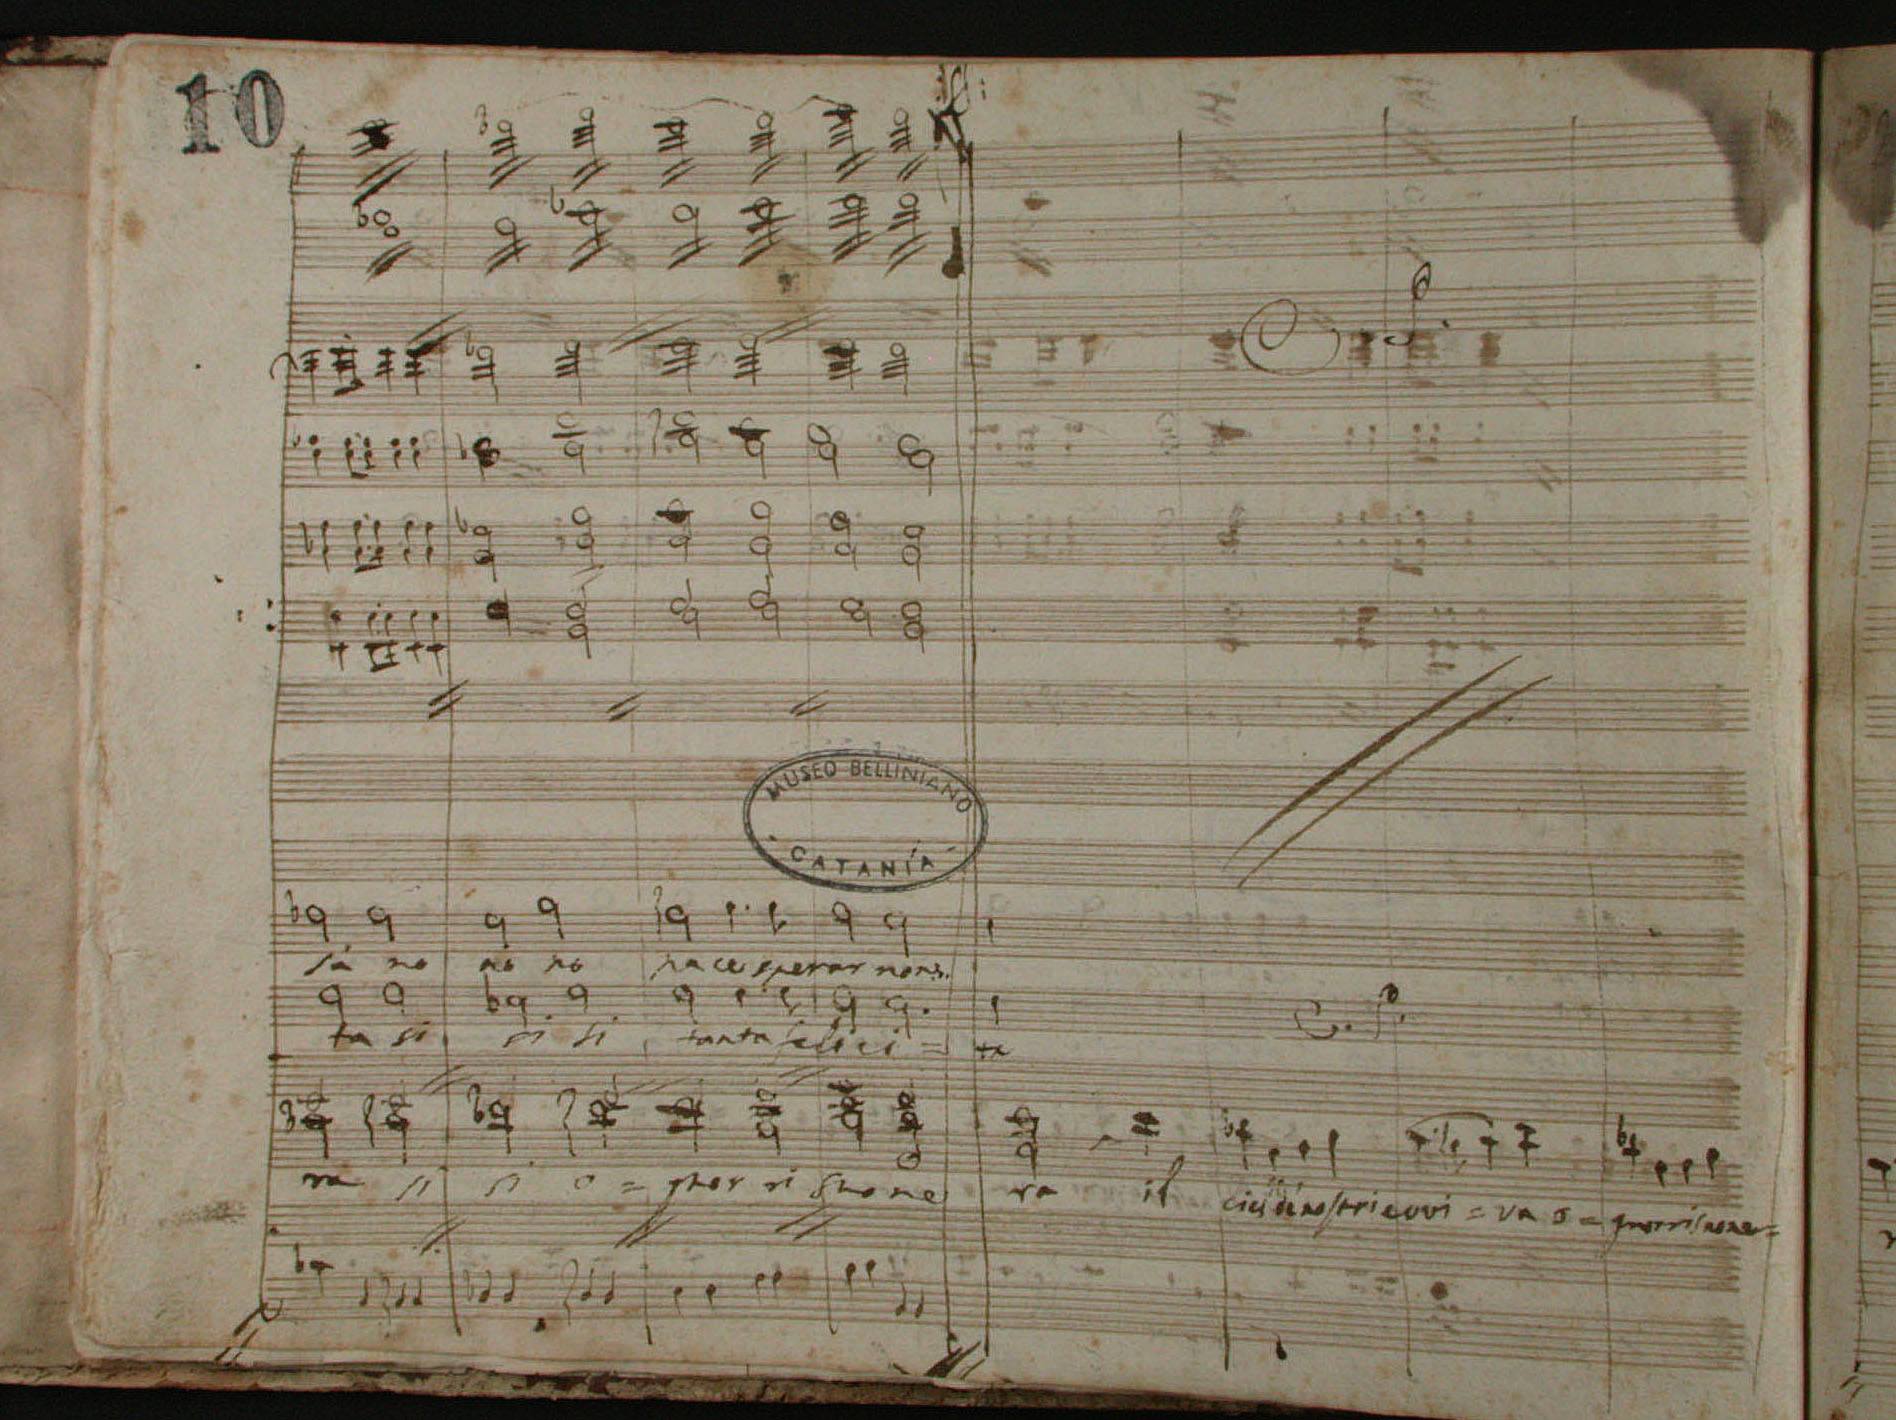 10
MUSEO BELLINIANO
CATANIA
sà no no no pace sperar non s.
ta si si si tanta felici = tà
rà si si o = gnor ri suone rà il ciel di nostri evvi = va o = gnor risuone =